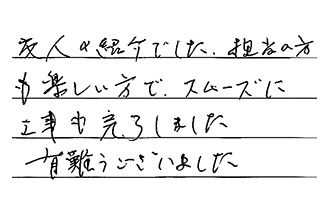 友人の紹介でした．担当の方
も楽しい方で．スムーズに
工事も完了しました
有難うございました